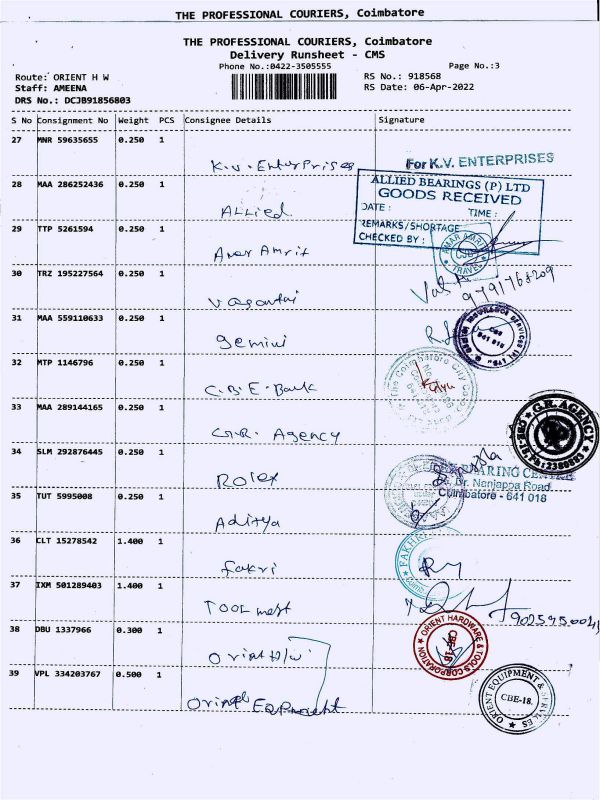 THE PROFESSIONAL COURIERS, Coimbatore
THE PROFESSIONAL COURIERS, Coimbatore
Delivery Runsheet - CMS
Phone No.:0422-3505555
Page No.:3
Route: ORIENT H W
RS No.: 918568
Staff: AMEENA
RS Date: 06-Apr-2022
DRS No.: DCJB91856803
S No Consignment No Weight PCS Consignee Details Signature
27 MNR 59635655 0.250 1
K.V. Enterprises
For K.V. ENTERPRISES
28 MAA 286252436 0.250 1
ALLied
ALLIED BEARINGS (P) LTD
GOODS RECEIVED
DATE :
TIME :
REMARKS/SHORTAGE
CHECKED BY :
29 TTP 5261594 0.250 1
Amar Amrit
AMAR AMRIT
CJB
TRAVEL
30 TRZ 195227564 0.250 1
Vasantai
9791768209
31 MAA 559110633 0.250 1
gemini
GEMINI INSURANCE SERVICES (P) LTD
CBE
641 018
32 MTP 1146796 0.250 1
C.B.E-Bank
The Coimbatore City
33 MAA 289144165 0.250 1
G.R. Agency
G.R. AGENCY
CBE-18. Ph: 2380893
34 SLM 292876445 0.250 1
Rolex
BEARING CENTRE
Dr. Nanjappa Road
Coimbatore - 641 018
35 TUT 5995008 0.250 1
Aditya
36 CLT 15278542 1.400 1
fakri
FAKHRI
37 IXM 501289403 1.400 1
TOOL mest
38 DBU 1337966 0.300 1
Orint H/w
ORIENT HARDWARE & TOOLS CORPORATION
CBE-18
39 VPL 334203767 0.500 1
ORIENT EQUIPMENT & SERVICES
CBE-18.